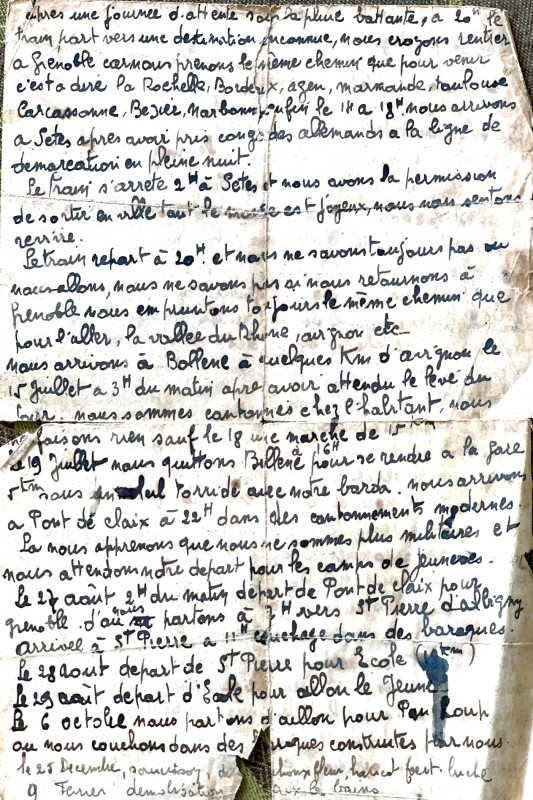 Apres une journée d'attente sous la pluie battante, a 20H le
train part vers une destination inconnue, nous croyons rentrer
a Grenoble car nous prenons le même chemin que pour venir
c'est a dire la Rochelle, Bordeux, agen, marmande, toulouse
Carcassonne, Bezier, narbonne, enfin le 14 a 18H nous arrivons
a Setes apres avoir pris congé des allemands a la ligne de
demarcation en pleine nuit.
Le train s'arrete 2H à Setes et nous avons la permission
de sortir en ville tout le monde est joyeux, nous nous sentons
revivre.
Le train repart à 20H et nous ne savons toujours pas ou
nous allons, nous ne savons pas si nous retournons à
Grenoble nous empruntons toujours le même chemin que
pour l'aller, la vallée du Rhone, avignon etc
nous arrivons à Bollene à quelques Km d'avignon le
15 Juillet a 3H du matin apres avoir attendu le levé du
jour. nous sommes cantonnés chez l'habitant, nous
faisons rien sauf le 18 une marche de 15 km
le 19 Juillet nous quittons Bollene à 16H pour se rendre a la gare
5km sous un soleil torride avec notre barda. nous arrivons
a Pont de claix à 22H dans des cantonnements modernes.
La nous apprenons que nous ne sommes plus militaires et
nous attendons notre depart pour les camps de jeunesses.
Le 27 août 2H du matin depart de Pont de claix pour
grenoble. d'ou nous partons à 7H vers St Pierre d'albigny
arrivée à St Pierre a 11H couchage dans des baraques.
Le 28 aout depart de St Pierre pour Ecole ( km)
Le 29 août depart d'Ecole pour aillon le Jeune
Le 6 octobre nous partons d'aillon pour Pau Loup
ou nous couchons dans des baraques construites par nous.
le 25 Decembre, choux fleur, haricot
9 Fevrier demobilisation aix le bains